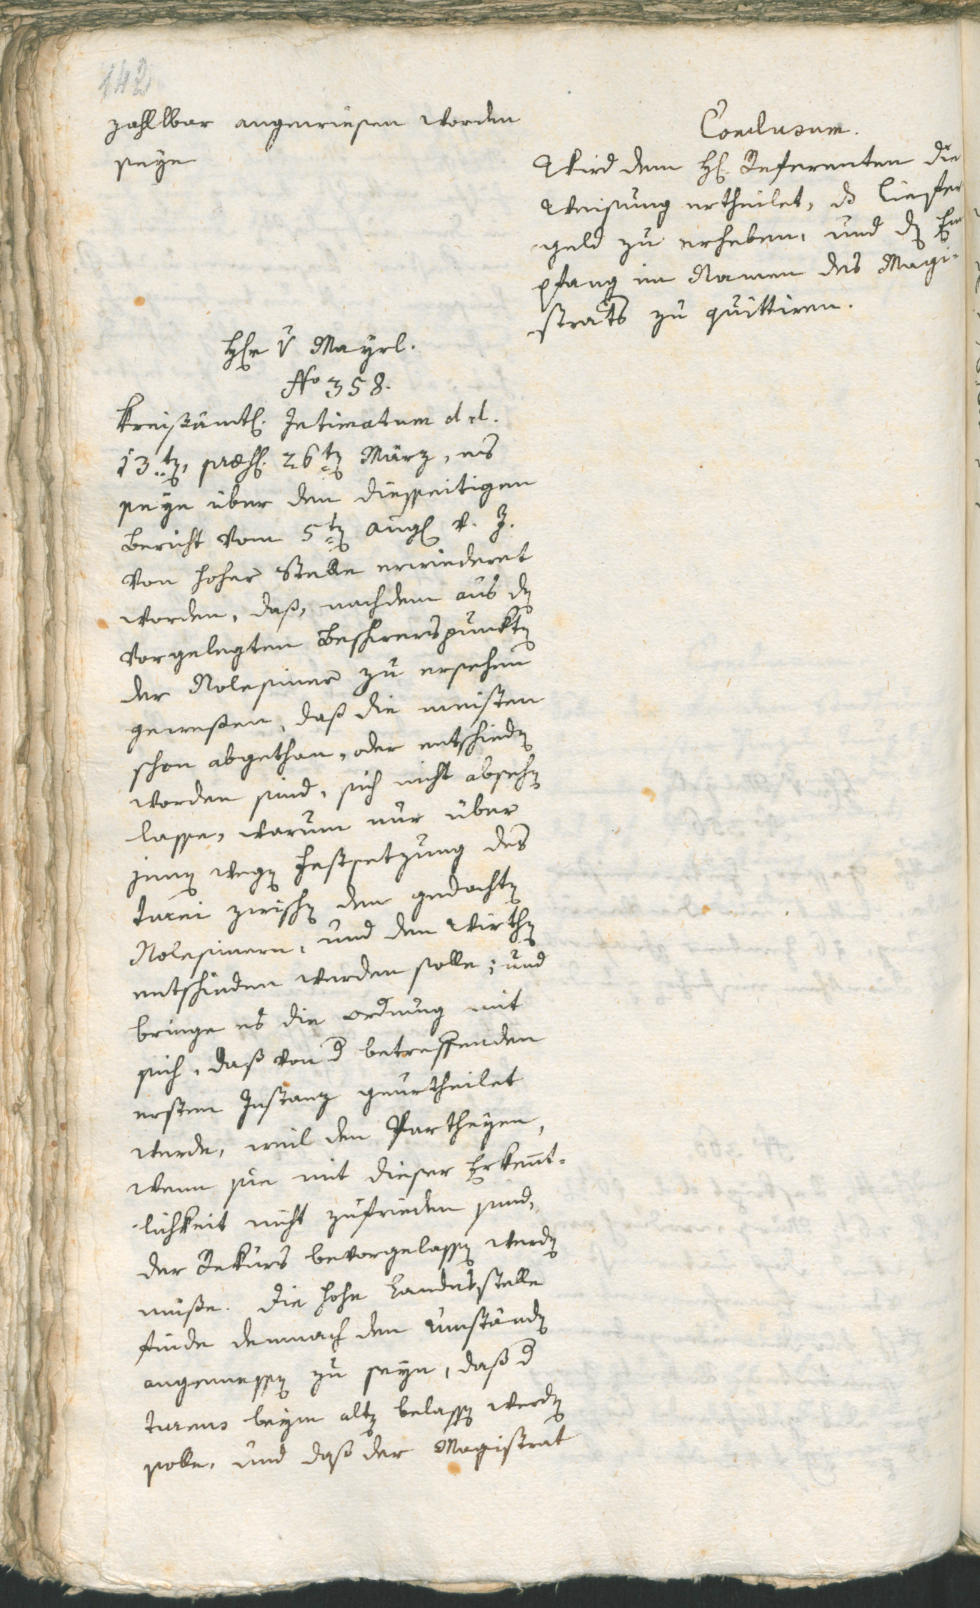 142
zahlbar angewiesen worden
seye
Conclusum.
Wird dem H. Referenten die
Weisung ertheilet, ds Liefer
geld zu erheben, und dn Em
pfang im Namen des Magi-
strats zu quittiren.
Hr v Mayrl.
No 358.
Kreisämtl. Intimatum dd.
13tn, præs. 26tn März, es
seye über den diesseitigen
Bericht vom 5tn Aug v. J.
von hoher Stelle erwiederet
worden, daß, nachdem aus dn
vorgelegten Beschwerspunktn
der Rolesiner zu ersehen
gewesen, daß die meisten
schon abgethan, oder entschiedn
worden sind, sich nicht absehn
lasse, warum nur über
jenen wegn Festsetzung des
Turni zwischn den gedachtn
Rolesinern, und den Wirthn
entschieden werden solle; und
bringe es die Ordnung mit
sich, daß von d betreffenden
ersten Instanz geurtheilet
werde, weil den Partheyen,
wenn sie mit dieser Erkennt-
lichkeit nicht zufrieden sind,
der Rekurs bevorgelassn werdn
müße. Die hohe Landesstelle
finde demnach den Umständn
angemessn zu seyn, daß d
Turnus beym altn belassn werdn
solle, und daß der Magistrat